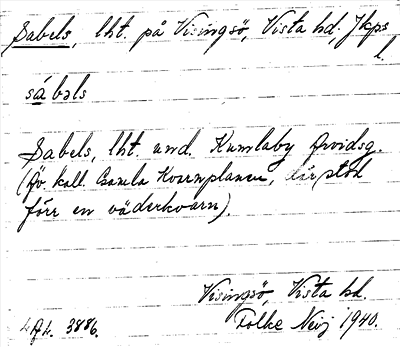 Sabels, lht. på Visingsö, Vista hd, Jkps
l.
sábəls
Sabels, lht. und. Kumlaby Arvidsg.
(Äv. kall. Gamla Kvarnplanen, där stod
förr en väderkvarn).
Visingsö, Vista hd.
3886. Folke Neij 1940.